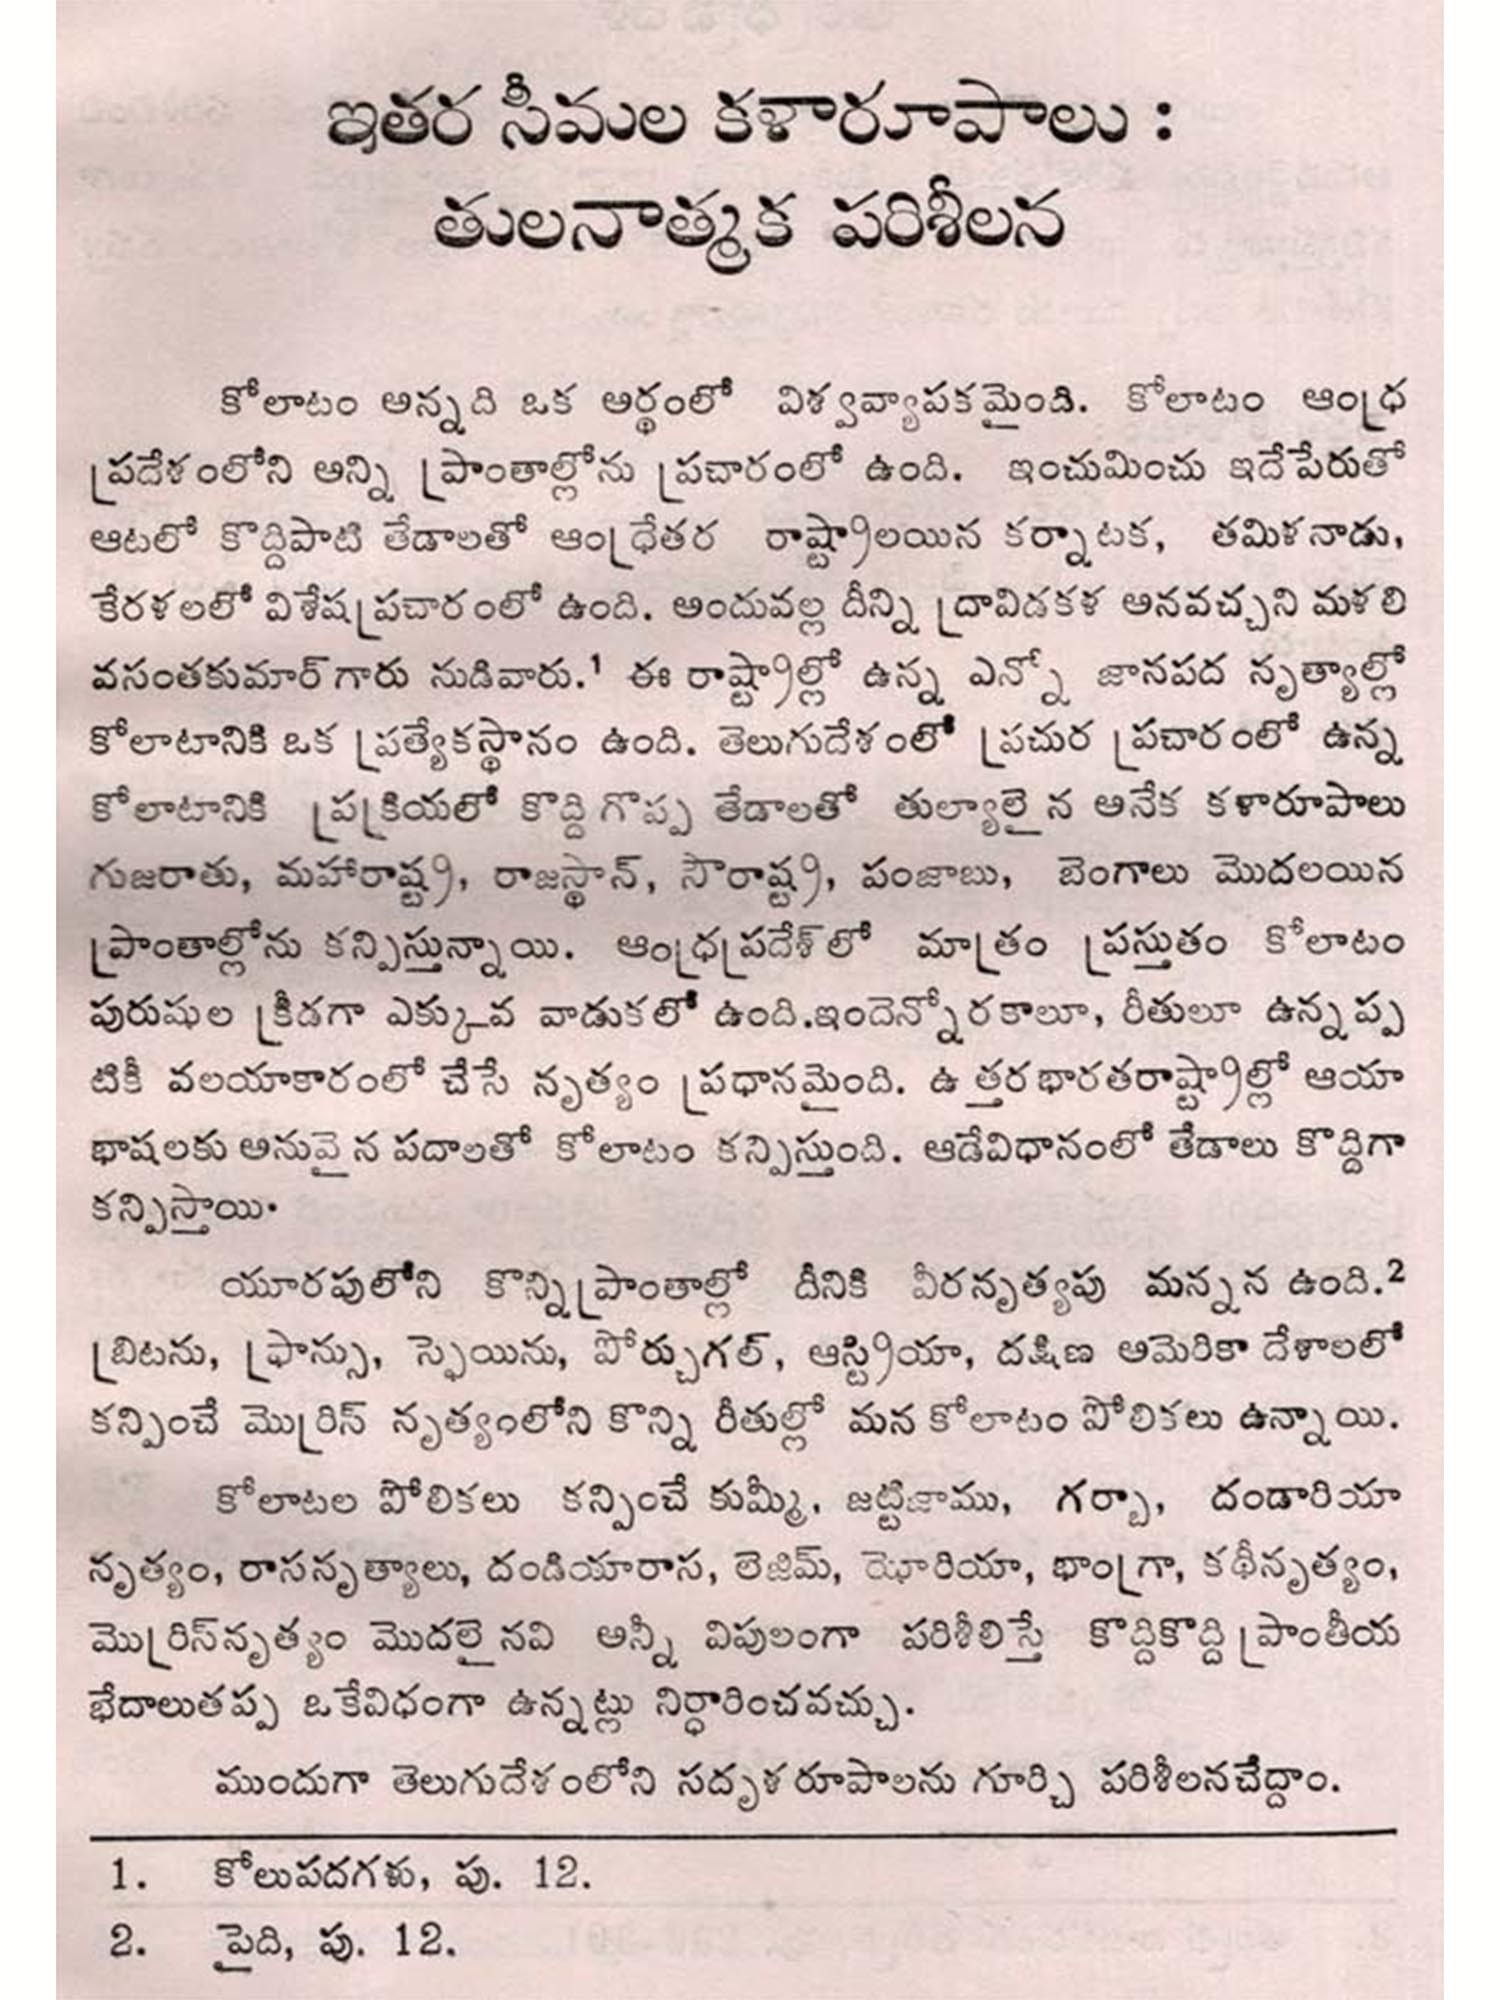 ఇతర సీమల కళారూపాలు :
తులనాత్మక పరిశీలన
కోలాటం అన్నది ఒక అర్థంలో విశ్వవ్యాపకమైంది. కోలాటం ఆంధ్ర
ప్రదేశంలోని అన్ని ప్రాంతాల్లోను ప్రచారంలో ఉంది. ఇంచుమించు ఇదేపేరుతో
ఆటలో కొద్దిపాటి తేడాలతో ఆంధ్రేతర రాష్ట్రాలయిన కర్నాటక, తమిళనాడు,
కేరళలలో విశేషప్రచారంలో ఉంది. అందువల్ల దీన్ని ద్రావిడకళ అనవచ్చని మళలి
వసంతకుమార్‌గారు నుడివారు.¹ ఈ రాష్ట్రాల్లో ఉన్న ఎన్నో జానపద నృత్యాల్లో
కోలాటానికి ఒక ప్రత్యేకస్థానం ఉంది. తెలుగుదేశంలో ప్రచుర ప్రచారంలో ఉన్న
కోలాటానికి ప్రక్రియలో కొద్దిగొప్ప తేడాలతో తుల్యాలైన అనేక కళారూపాలు
గుజరాతు, మహారాష్ట్ర, రాజస్థాన్, సౌరాష్ట్ర, పంజాబు, బెంగాలు మొదలయిన
ప్రాంతాల్లోను కన్పిస్తున్నాయి. ఆంధ్రప్రదేశ్‌లో మాత్రం ప్రస్తుతం కోలాటం
పురుషుల క్రీడగా ఎక్కువ వాడుకలో ఉంది.ఇందెన్నోరకాలూ, రీతులూ ఉన్నప్ప
టికీ వలయాకారంలో చేసే నృత్యం ప్రధానమైంది. ఉత్తరభారతరాష్ట్రాల్లో ఆయా
భాషలకు అనువైన పదాలతో కోలాటం కన్పిస్తుంది. ఆడేవిధానంలో తేడాలు కొద్దిగా
కన్పిస్తాయి.
యూరపులోని కొన్నిప్రాంతాల్లో దీనికి వీరనృత్యపు మన్నన ఉంది.²
బ్రిటను, ఫ్రాన్సు, స్ఫెయిను, పోర్చుగల్, ఆస్ట్రియా, దక్షిణ అమెరికా దేశాలలో
కన్పించే మొర్రిస్ నృత్యంలోని కొన్ని రీతుల్లో మన కోలాటం పోలికలు ఉన్నాయి.
కోలాటల పోలికలు కన్పించే కుమ్మీ, జట్టిజాము, గర్బా, దండారియా
నృత్యం, రాసనృత్యాలు, దండియారాస, లెజిమ్, ఝోరియా, భాంగ్రా, కథీనృత్యం,
మొర్రిస్‌నృత్యం మొదలైనవి అన్నీ విపులంగా పరిశీలిస్తే కొద్దికొద్ది ప్రాంతీయ
భేదాలుతప్ప ఒకేవిధంగా ఉన్నట్లు నిర్ధారించవచ్చు.
ముందుగా తెలుగుదేశంలోని సదృశరూపాలను గూర్చి పరిశీలనచేద్దాం.
1. కోలుపదగళు, పు. 12.
2. పైది, పు. 12.